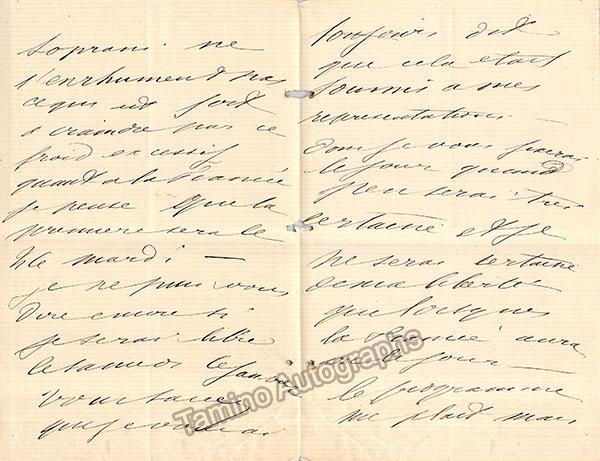 soprani ne
s'enrhument pas
ce qui est fort
a craindre par ce
froid excessif
quant a la Fiancée
je pense que la
premiere sera le
mardi —
je ne puis vous
dire encore si
je serai libre
le samedi
vous savez
que je vous ai
toujours dit
que cela etait
soumis a mes
representations —
donc je vous
le jour quand
j'en serai tres
certaine et je
ne serai certaine
de ma liberté
que lorsque
la Fiancée aura
le jour —
le programme
me plait mais
Tamino Autographs